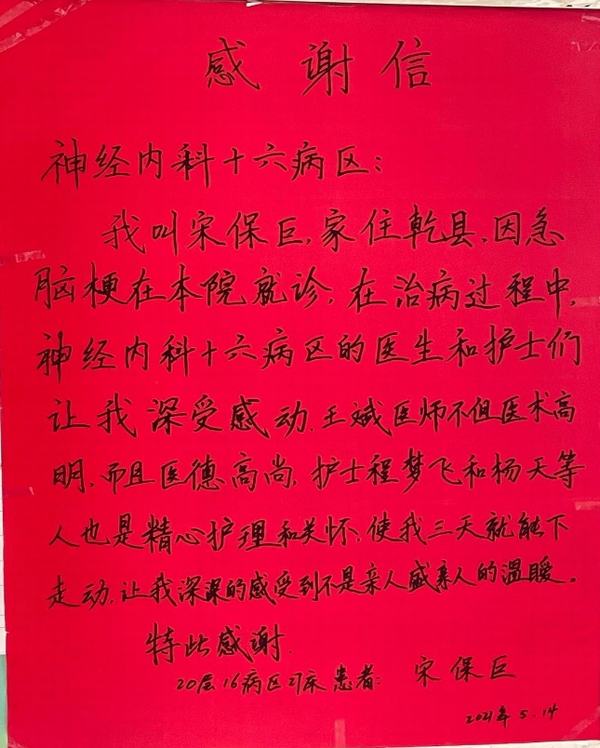 感谢信
神经内科十六病区:
我叫宋保巨,家住乾县,因急
脑梗在本院就诊,在治病过程中,
神经内科十六病区的医生和护士们
让我深受感动,王斌医师不但医术高
明,而且医德高尚,护士程梦飞和杨天等
人也是精心护理和关怀,使我三天就能下
走动,让我深深的感受到不是亲人盛亲人的温暖。
特此感谢
20层16病区27床患者: 宋保巨
2021年5.14